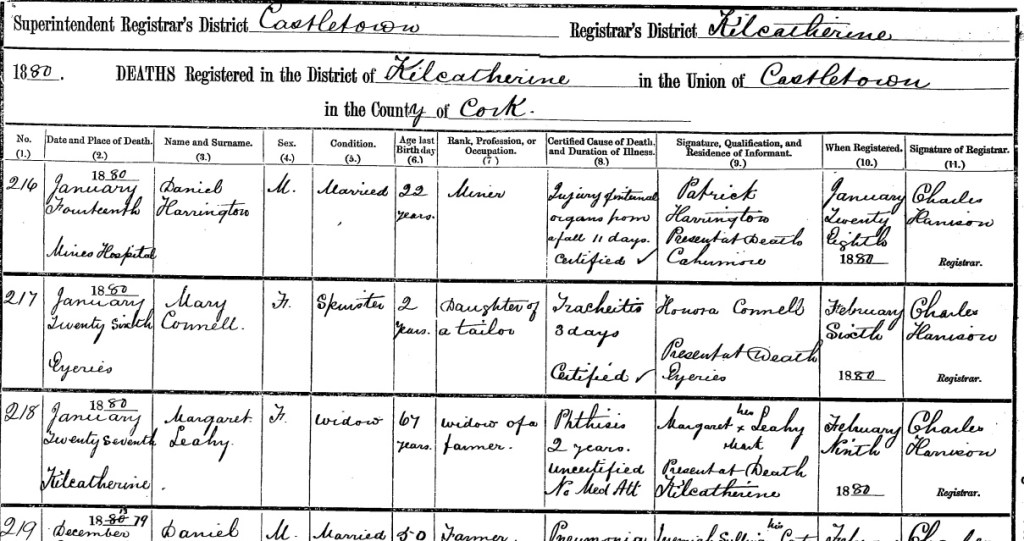 Superintendent Registrar's District Castletown Registrar's District Kilcatherine
1880. DEATHS Registered in the District of Kilcatherine in the Union of Castletown
in the County of Cork.
No. (1.) Date and Place of Death. (2.) Name and Surname. (3.) Sex. (4.) Condition. (5.) Age last Birthday (6.) Rank, Profession, or Occupation. (7) Certified Cause of Death, and Duration of Illness. (8.) Signature, Qualification, and Residence of Informant. (9.) When Registered. (10.) Signature of Registrar. (11.)
216
1880
January
Fourteenth
Mines Hospital
Daniel
Harrington
M.
Married
22
years.
Miner
Injury of internal
organs from
a fall 11 days.
Certified ✓
Patrick
Harrington
Present at Death
Cahermore
January
Twenty
Eighth
1880
Charles
Hanison
Registrar.
217
1880
January
Twenty Sixth
Eyeries
Mary
Connell.
F.
Spinster
2
Years.
Daughter of
a tailor
Tracheitis
3 days
Certified ✓
Honora Connell
Present at Death
Eyeries
February
Sixth
1880
Charles
Hanison
Registrar.
218
1880
January
Twenty Seventh
Kilcatherine
Margaret
Leahy.
F.
Widow
67
years.
Widow of a
farmer.
Phthisis
2 years.
Uncertified
No Med Att
her
Margaret x Leahy
Mark
Present at Death
Kilcatherine
February
Ninth
1880
Charles
Hanison
Registrar.
219
1880 79
December
Daniel
M.
Married
50
Farmer
Pneumonia
his